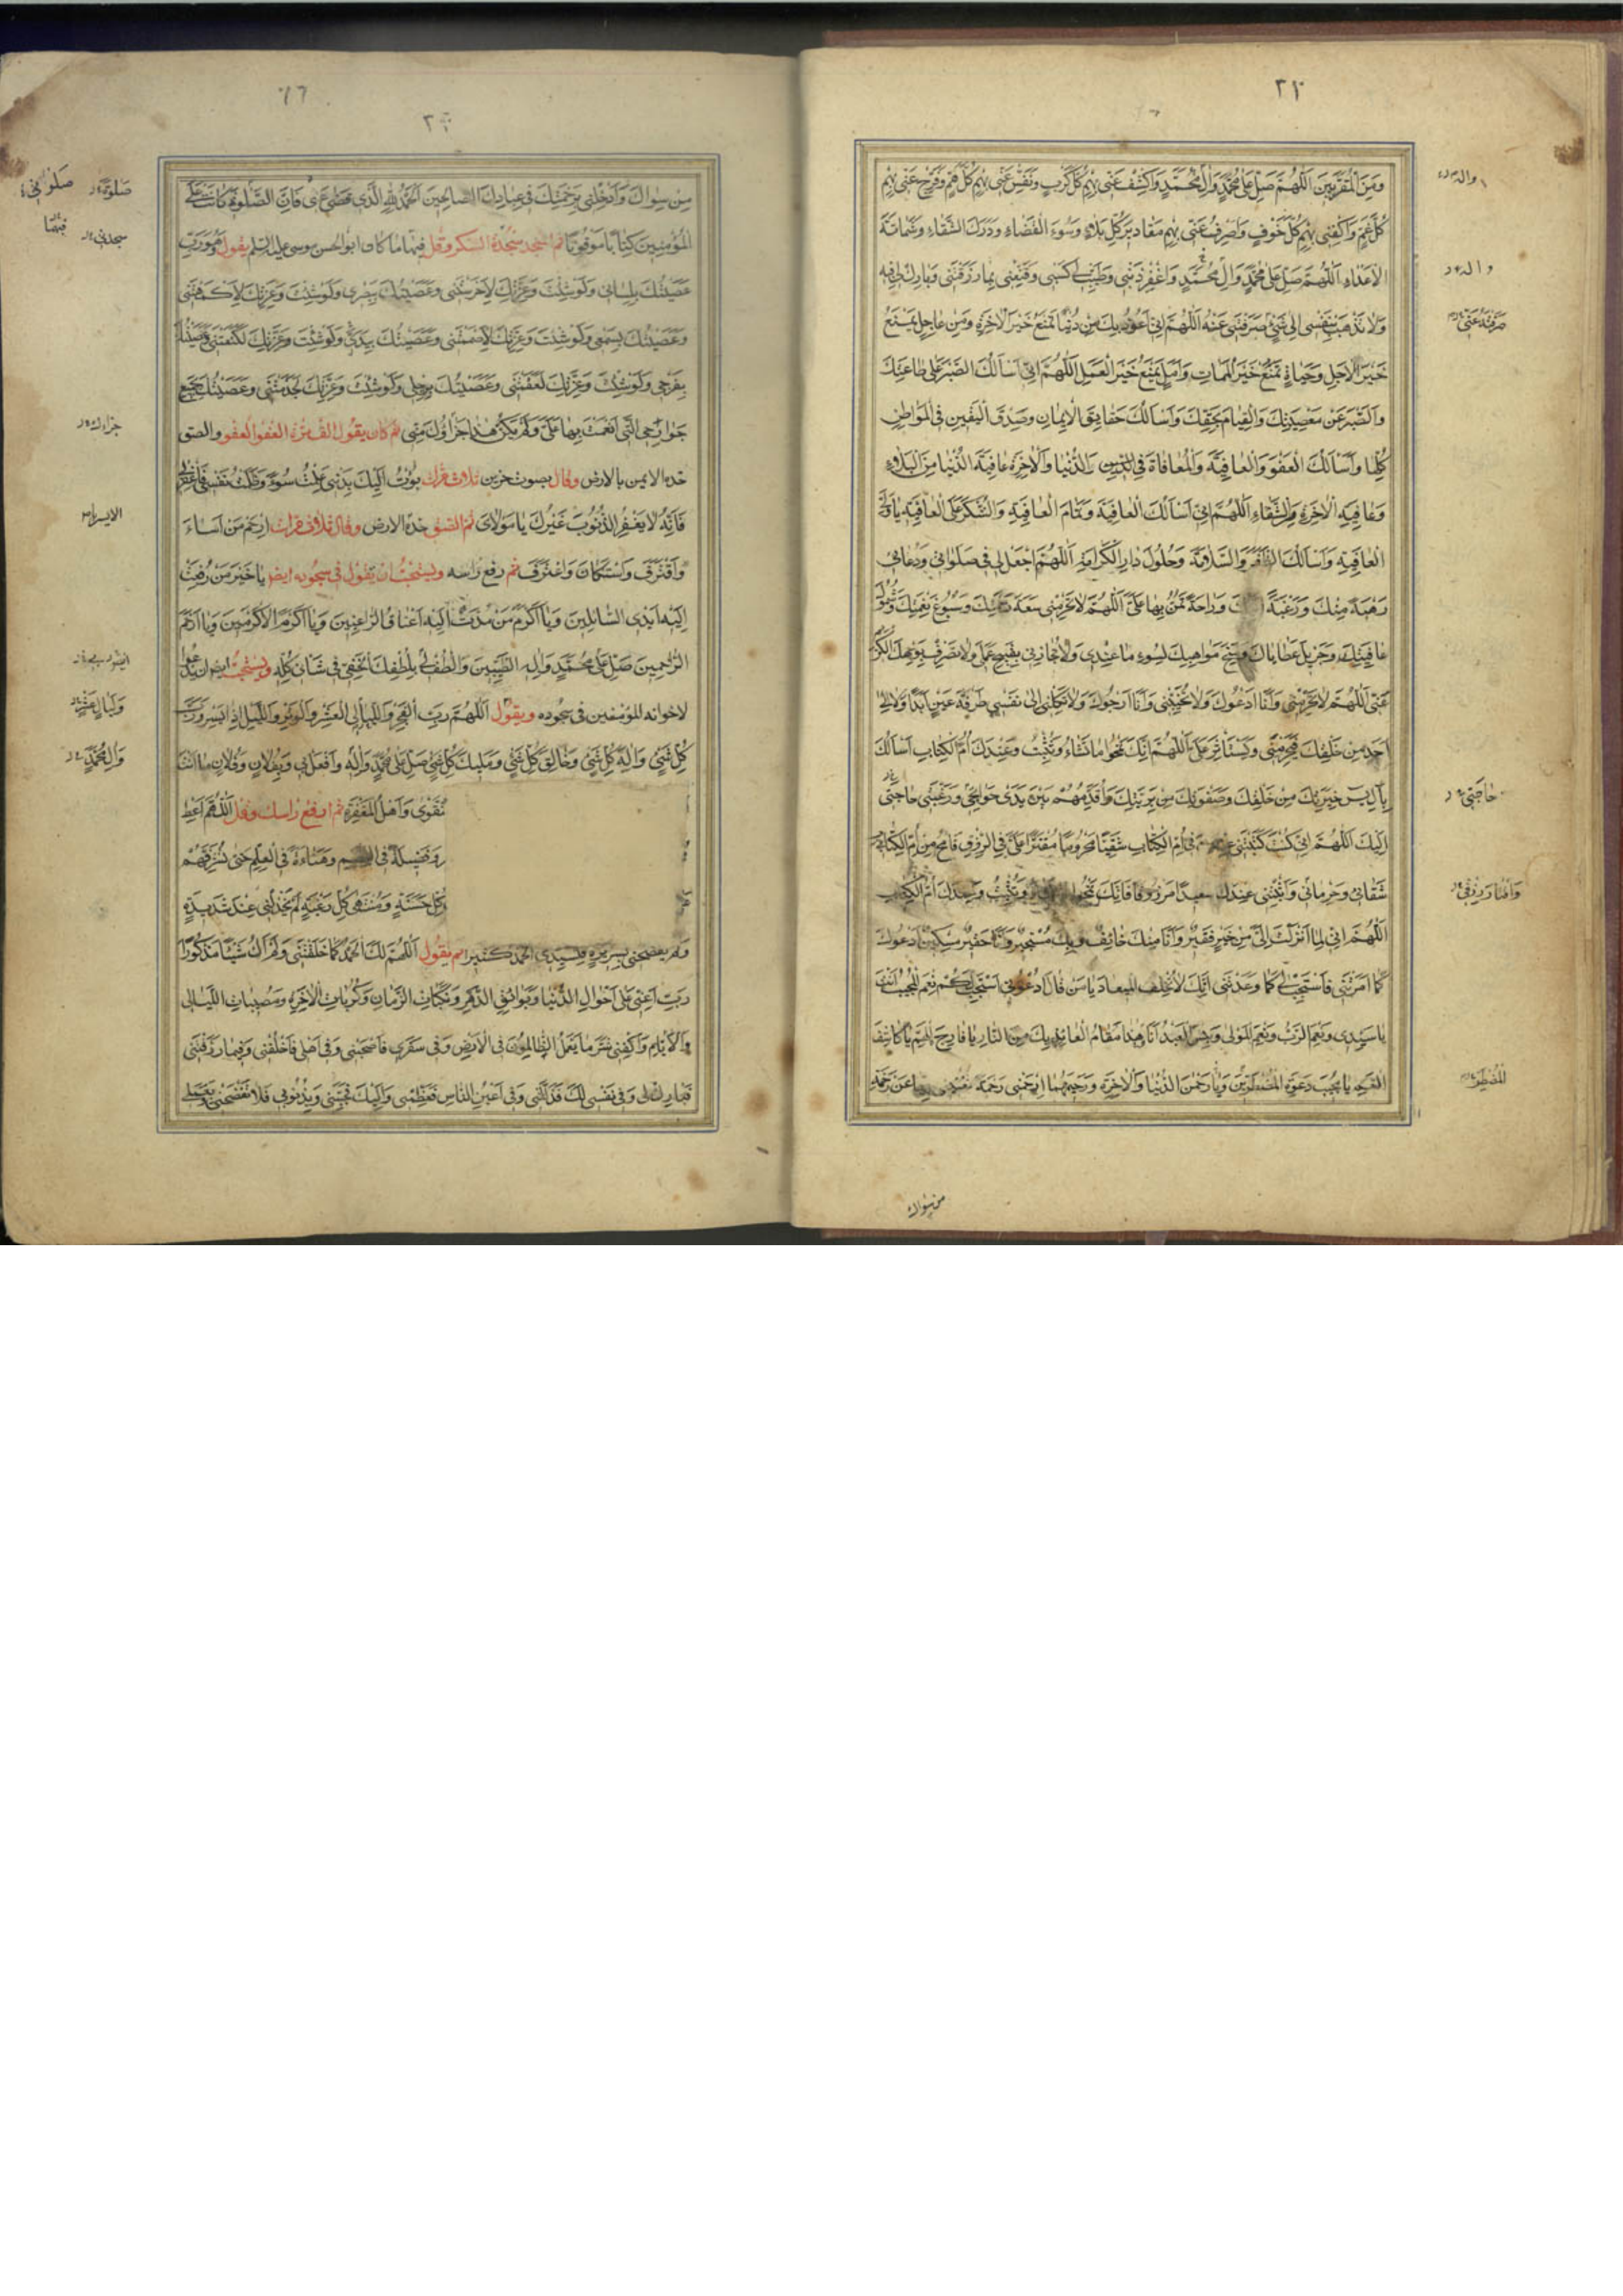 ٣٢
وَمِنَ الْمُقَرَّبِينَ اَللّٰهُمَّ صَلِّ عَلٰى مُحَمَّدٍ وَالِ مُحَمَّدٍ وَاكْشِفْ عَنّى بِهِمْ كُلَّ كَرْبٍ وَنَفِّسْ عَنّى بِهِمْ كُلَّ هَمٍّ وَفَرِّجْ عَنّى بِهِمْ
كُلَّ غَمٍّ وَاكْفِنى بِهِمْ كُلَّ خَوْفٍ وَاصْرِفْ عَنّى بِهِمْ مَقاديرَ كُلِّ بَلاءٍ وَسُوءَ الْقَضاءِ وَدَرَكَ الشَّقاءِ وَشَماتَةَ
الْاَعْداءِ اَللّٰهُمَّ صَلِّ عَلٰى مُحَمَّدٍ وَالِ مُحَمَّدٍ وَاغْفِرْ ذَنْبى وَطَيِّبْ لى كَسْبى وَقَنِّعْنى بِما رَزَقْتَنى وَبارِكْ لى فيهِ
وَلا تَذْهَبْ بِنَفْسى اِلٰى شَىْءٍ صَرَفْتَنى عَنْهُ اَللّٰهُمَّ اِنّى اَعُوذُ بِكَ مِنْ دُنْيا تَمْنَعُ خَيْرَ الْاٰخِرَةِ وَمِنْ عاجِلٍ يَمْنَعُ
خَيْرَ الْاٰجِلِ وَحَياةٍ تَمْنَعُ خَيْرَ الْمَماتِ وَاَمَلٍ يَمْنَعُ خَيْرَ الْعَمَلِ اَللّٰهُمَّ اِنّى اَسْاَلُكَ الصَّبْرَ عَلٰى طاعَتِكَ
وَالصَّبْرَ عَنْ مَعْصِيَتِكَ وَالْقِيامَ بِحَقِّكَ وَاَسْاَلُكَ حَقايِقَ الْايمانِ وَصِدْقَ الْيَقينِ فِى الْمَواطِنِ
كُلِّها وَاَسْاَلُكَ الْعَفْوَ وَالْعافِيَةَ وَالْمُعافاةَ فِى الدّينِ وَالدُّنْيا وَالْاٰخِرَةِ عافِيَةَ الدُّنْيا مِنَ الْبَلاءِ
وَعافِيَةَ الْاٰخِرَةِ مِنَ الشَّقاءِ اَللّٰهُمَّ اِنّى اَسْاَلُكَ الْعافِيَةَ وَتَمامَ الْعافِيَةِ وَالشُّكْرَ عَلَى الْعافِيَةِ يا وَلِىَّ
الْعافِيَةِ وَاَسْاَلُكَ الظَّفَرَ وَالسَّلامَةَ وَحُلُولَ دارِ الْكَرامَةِ اَللّٰهُمَّ اجْعَلْ لى فى صَلٰواتى وَدُعائى
رَهْبَةً مِنْكَ وَرَغْبَةً وَراحَةً تَمُنُّ بِها عَلَىَّ اَللّٰهُمَّ لا تَحْرِمْنى سَعَةَ رَحْمَتِكَ وَسُبُوغَ نِعْمَتِكَ وَشُمُولَ
عافِيَتِكَ وَجَزيلَ عَطاياكَ وَمِنَحَ مَواهِبِكَ لِسُوءِ ما عِنْدى وَلا تُجازِنى بِقَبيحِ عَمَلى وَلا تَصْرِفْ بِوَجْهِكَ الْكَريمِ
عَنّى اَللّٰهُمَّ لا تَحْرِمْنى وَاَنَا اَدْعُوكَ وَلا تُخَيِّبْنى وَاَنَا اَرْجُوكَ وَلا تَكِلْنى اِلٰى نَفْسى طَرْفَةَ عَيْنٍ اَبَدًا وَلا اِلٰى
اَحَدٍ مِنْ خَلْقِكَ فَيَحْرِمَنى وَيَسْتَاْثِرَ عَلَىَّ اَللّٰهُمَّ اِنَّكَ تَمْحُو ما تَشاءُ وَتُثْبِتُ وَعِنْدَكَ اُمُّ الْكِتابِ اَسْاَلُكَ
بِاٰلِ يٰسٓ خِيَرَتِكَ مِنْ خَلْقِكَ وَصَفْوَتِكَ مِنْ بَرِيَّتِكَ وَاُقَدِّمُهُمْ بَيْنَ يَدَىْ حَوائِجى وَرَغْبَتى حاجَتى
اِلَيْكَ اَللّٰهُمَّ اِنْ كُنْتَ كَتَبْتَنى فى اُمِّ الْكِتابِ شَقِيًّا مَحْرُومًا مُقَتَّرًا عَلَىَّ فِى الرِّزْقِ فَامْحُ مِنْ اُمِّ الْكِتابِ
شَقائى وَحِرْمانى وَاَثْبِتْنى عِنْدَكَ سَعيدًا مَرْزُوقًا فَاِنَّكَ تَمْحُو وَتُثْبِتُ وَعِنْدَكَ اُمُّ الْكِتابِ
اَللّٰهُمَّ اِنّى لِما اَنْزَلْتَ اِلَىَّ مِنْ خَيْرٍ فَقيرٌ وَاَنَا مِنْكَ خائِفٌ وَبِكَ مُسْتَجيرٌ وَاَنَا حَقيرٌ مِسْكينٌ اَدْعُوكَ
كَما اَمَرْتَنى فَاسْتَجِبْ لى كَما وَعَدْتَنى اِنَّكَ لا تُخْلِفُ الْميعادَ يا مَنْ قالَ ادْعُونى اَسْتَجِبْ لَكُمْ نِعْمَ الْمُجيبُ اَنْتَ
يا سَيِّدى وَنِعْمَ الرَّبُّ وَنِعْمَ الْمَوْلٰى وَبِئْسَ الْعَبْدُ اَنَا وَهٰذا مَقامُ الْعائِذِ بِكَ مِنَ النّارِ يا فارِجَ الْهَمِّ يا كاشِفَ
الْغَمِّ يا مُجيبَ دَعْوَةِ الْمُضْطَرّينَ وَيا رَحْمٰنَ الدُّنْيا وَالْاٰخِرَةِ وَرَحيمَهُما اِرْحَمْنى رَحْمَةً عَنْ رَحْمَةِ
من سواك
مِنْ سِواكَ وَاَدْخِلْنى بِرَحْمَتِكَ فى عِبادِكَ الصّالِحينَ اَلْحَمْدُ لِلّٰهِ الَّذى قَضٰى عَنّى فَاِنَّ الصَّلٰوةَ كانَتْ عَلَى
الْمُؤْمِنينَ كِتابًا مَوْقُوتًا ثم اسجد سجدة الشكر وقل فيها ما كان ابو الحسن موسى عليه السلم يقول وهو رَبِّ
عَصَيْتُكَ بِلِسانى وَلَوْ شِئْتَ وَعِزَّتِكَ لَاَخْرَسْتَنى وَعَصَيْتُكَ بِبَصَرى وَلَوْ شِئْتَ وَعِزَّتِكَ لَاَكْمَهْتَنى
وَعَصَيْتُكَ بِسَمْعى وَلَوْ شِئْتَ وَعِزَّتِكَ لَاَصْمَمْتَنى وَعَصَيْتُكَ بِيَدى وَلَوْ شِئْتَ وَعِزَّتِكَ لَكَنَّعْتَنى وَعَصَيْتُكَ
بِفَرْجى وَلَوْ شِئْتَ وَعِزَّتِكَ لَعَقَمْتَنى وَعَصَيْتُكَ بِرِجْلى وَلَوْ شِئْتَ وَعِزَّتِكَ لَجَذَمْتَنى وَعَصَيْتُكَ بِجَميعِ
جَوارِحِى الَّتى اَنْعَمْتَ بِها عَلَىَّ وَلَمْ يَكُنْ هٰذا جَزاؤُكَ مِنّى ثم كان يقول الف مرة العفو العفو والصق
خده الايمن بالارض وقال بصوت حزين ثلاث مرات بُؤْتُ اِلَيْكَ بِذَنْبى عَمِلْتُ سُوءً وَظَلَمْتُ نَفْسى فَاغْفِرْ لى
فَاِنَّهُ لا يَغْفِرُ الذُّنُوبَ غَيْرُكَ يا مَوْلاىَ ثم الصق خده الارض وقال ثلاث مرات اِرْحَمْ مَنْ اَساءَ
وَاقْتَرَفَ وَاسْتَكانَ وَاعْتَرَفَ ثم رفع راسه ويستحب ان يقول فى سجوده ايضا يا خَيْرَ مَنْ رُفِعَتْ
اِلَيْهِ اَيْدِى السّائِلينَ وَيا اَكْرَمَ مَنْ مُدَّتْ اِلَيْهِ اَعْناقُ الرّاغِبينَ وَيا اَكْرَمَ الْاَكْرَمينَ وَيا اَرْحَمَ
الرّاحِمينَ صَلِّ عَلٰى مُحَمَّدٍ وَالِهِ الطَّيِّبينَ وَالْطُفْ لى بِلُطْفِكَ الْخَفِىِّ فى شَاْنى كُلِّهِ ويستحب ايضا ان يدعوا
لاخوانه المؤمنين فى سجوده ويقول اَللّٰهُمَّ رَبَّ الْفَجْرِ وَاللَّيالِى الْعَشْرِ وَالْوَتْرِ وَاللَّيْلِ اِذا يَسْرِ وَرَبَّ
كُلِّ شَىْءٍ وَاِلٰهَ كُلِّ شَىْءٍ وَخالِقَ كُلِّ شَىْءٍ وَمَليكَ كُلِّ شَىْءٍ صَلِّ عَلٰى مُحَمَّدٍ وَالِهِ وَافْعَلْ بى وَبِفُلانٍ وَفُلانٍ ما اَنْتَ
تَّقْوٰى وَاَهْلُ الْمَغْفِرَةِ ثم ارفع راسك وقل اَللّٰهُمَّ اَعْطِ
وَفَضيلَةً فى وَهَناءَةً فِى الْعِلْمِ حَتّٰى تُشَرِّفَهُمْ
كُلِّ حَسَنَةٍ وَمُنْتَهٰى كُلِّ رَغْبَةٍ لَمْ يَخْذُلْنى عِنْدَ شَديدَةٍ
وَلَمْ يَفْضَحْنى بِسَريرَةٍ فَلِسَيِّدِى الْحَمْدُ كَثيرًا ثم يقول اَللّٰهُمَّ لَكَ الْحَمْدُ كَما خَلَقْتَنى وَلَمْ اَكُ شَيْئًا مَذْكُورًا
رَبِّ اَعِنّى عَلٰى اَهْوالِ الدُّنْيا وَبَوائِقِ الدَّهْرِ وَنَكَباتِ الزَّمانِ وَكُرُباتِ الْاٰخِرَةِ وَمُصيباتِ اللَّيالى
وَالْاَيّامِ وَاكْفِنى شَرَّ ما يَعْمَلُ الظّالِمُونَ فِى الْاَرْضِ وَفى سَفَرى فَاصْحَبْنى وَفى اَهْلى فَاخْلُفْنى وَفيما رَزَقْتَنى
فَبارِكْ لى وَفى نَفْسى لَكَ فَذَلِّلْنى وَفى اَعْيُنِ النّاسِ فَعَظِّمْنى وَاِلَيْكَ فَحَبِّبْنى وَبِذُنُوبى فَلا تَفْضَحْنى وَبِعَمَلى